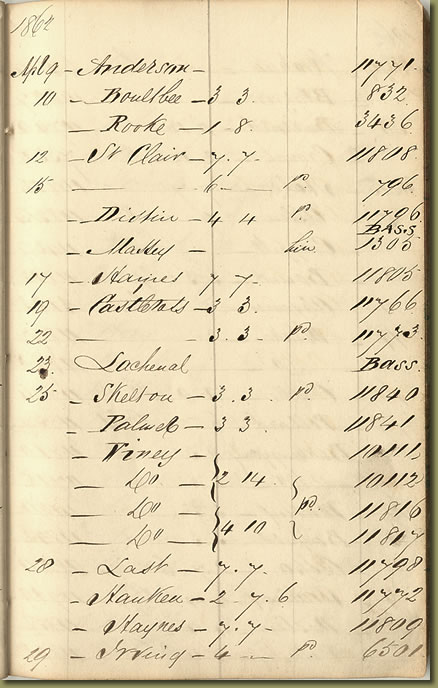 1862
Apl 9 - Anderson - 11771
10 - Boultbee - 3 3. 832
- Rooke - 1 - 8. 3436
12 - St Clair - 7. 7 - 11808
15 - 6 - pd. 796
- Distin - 4 4 pd. 11796
BASS
- Massey - 1305
17 - Haines - 7 7 - 11805
19 - 3 3. 11766
22 - 3. 3 - pd. 11773
23. Lachenal Bass.
25 - Skelton - 3. 3 - pd. 11840
- Palmer - 3 3 - 11841
- Viney - 10111
- Do 2 14. 10112
- Do pd. 11816
- Do 4 10 11817
28 - Last - 7. 7 - 11798
- Hanken - 2 - 7. 6 11772
- Haynes - 7. 7 - 11809
29 - Irving - 4 - pd. 6501